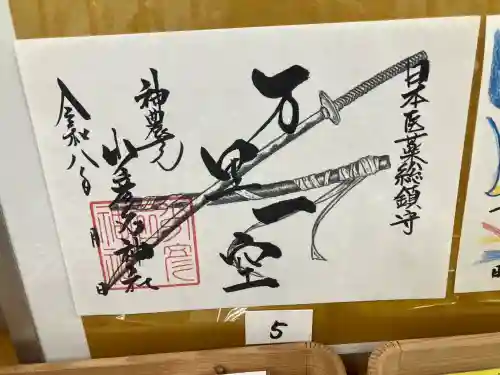 日本医薬総鎮守
万里一空
神農さん
少彦名神社
令和八年 月 日
5